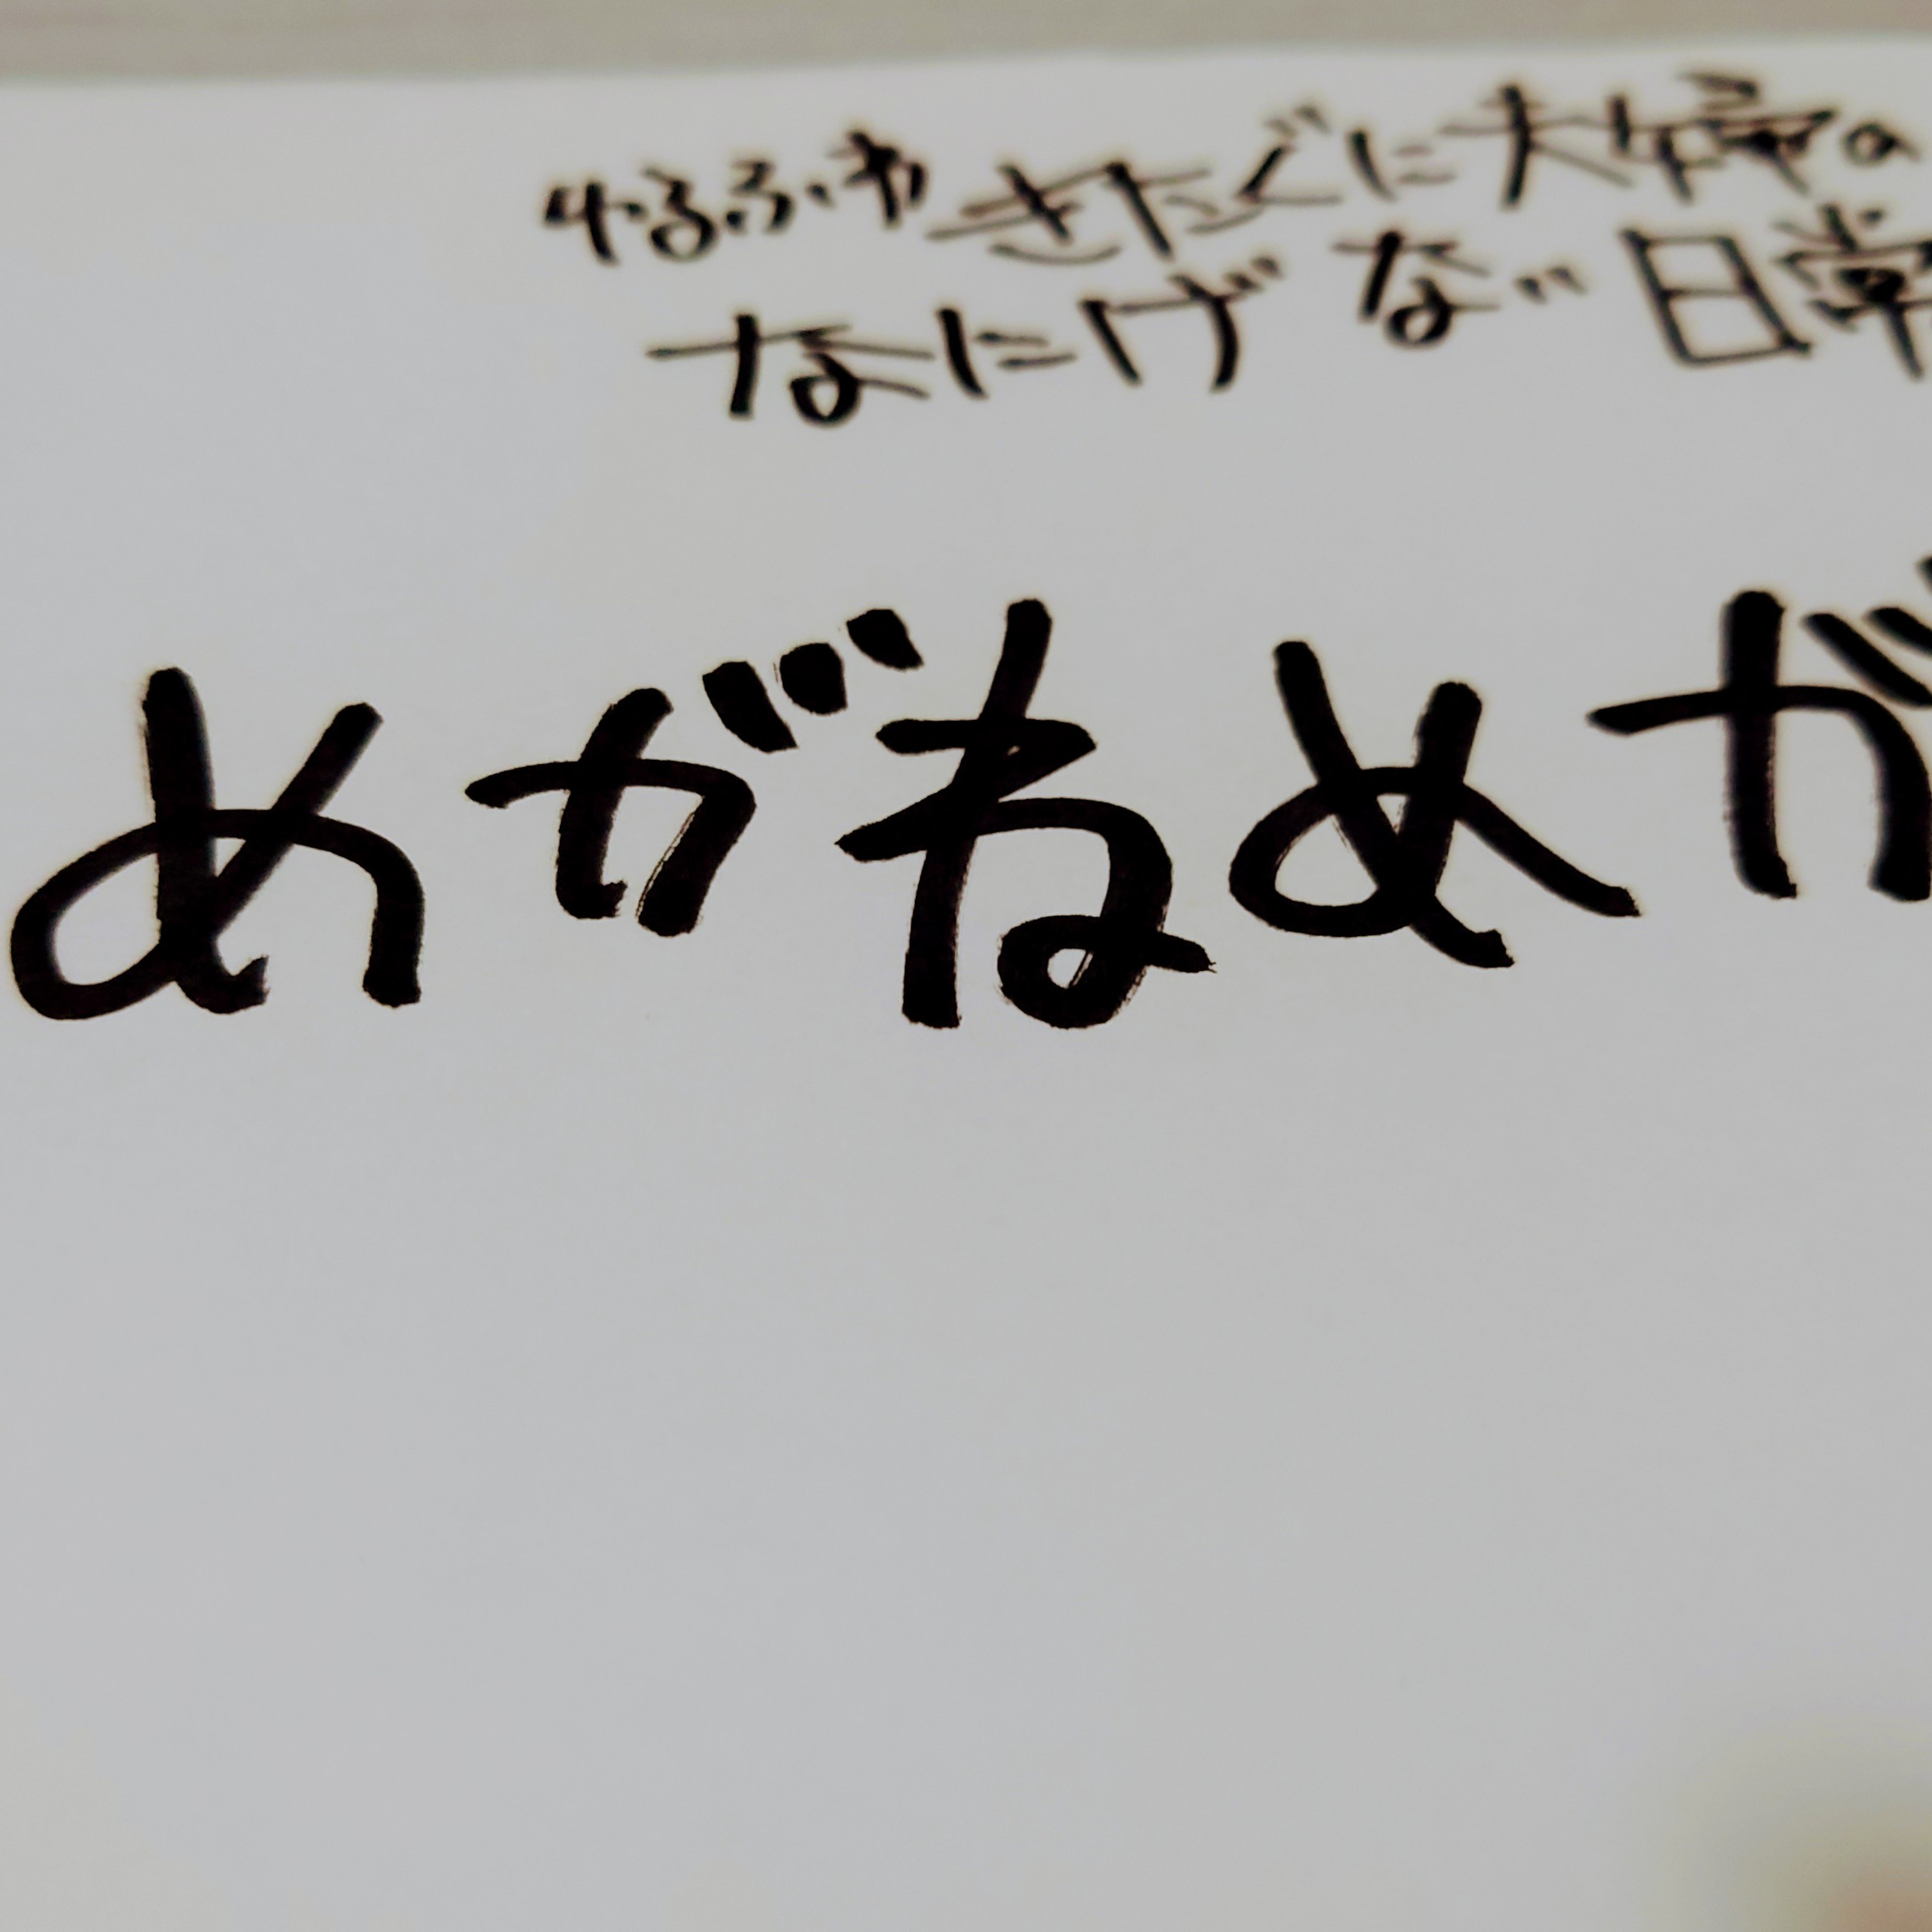 ゆるふわ きたぐに夫婦の
なにげない日常
めがねめが